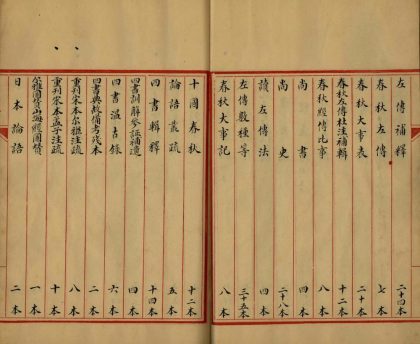 左傳補釋 二十四本
春秋左傳 七本
春秋大事表 二十本
春秋左傳杜注補輯 十二本
春秋經傳比事 八本
尚書 四本
尚史 二十八本
讀左傳法 四本
左傳數種等 三十五本
春秋大事記 八本
十國春秋 十二本
論語叢疏 五本
四書輯釋 十四本
四書訓解參證補遺 四本
四書溫古錄 六本
四書典故備考殘本 二本
重刊宋本爾雅注疏 八本
重刊宋本孟子注疏 十本
爾雅圖贊山海經圖贊 一本
日本論語 二本